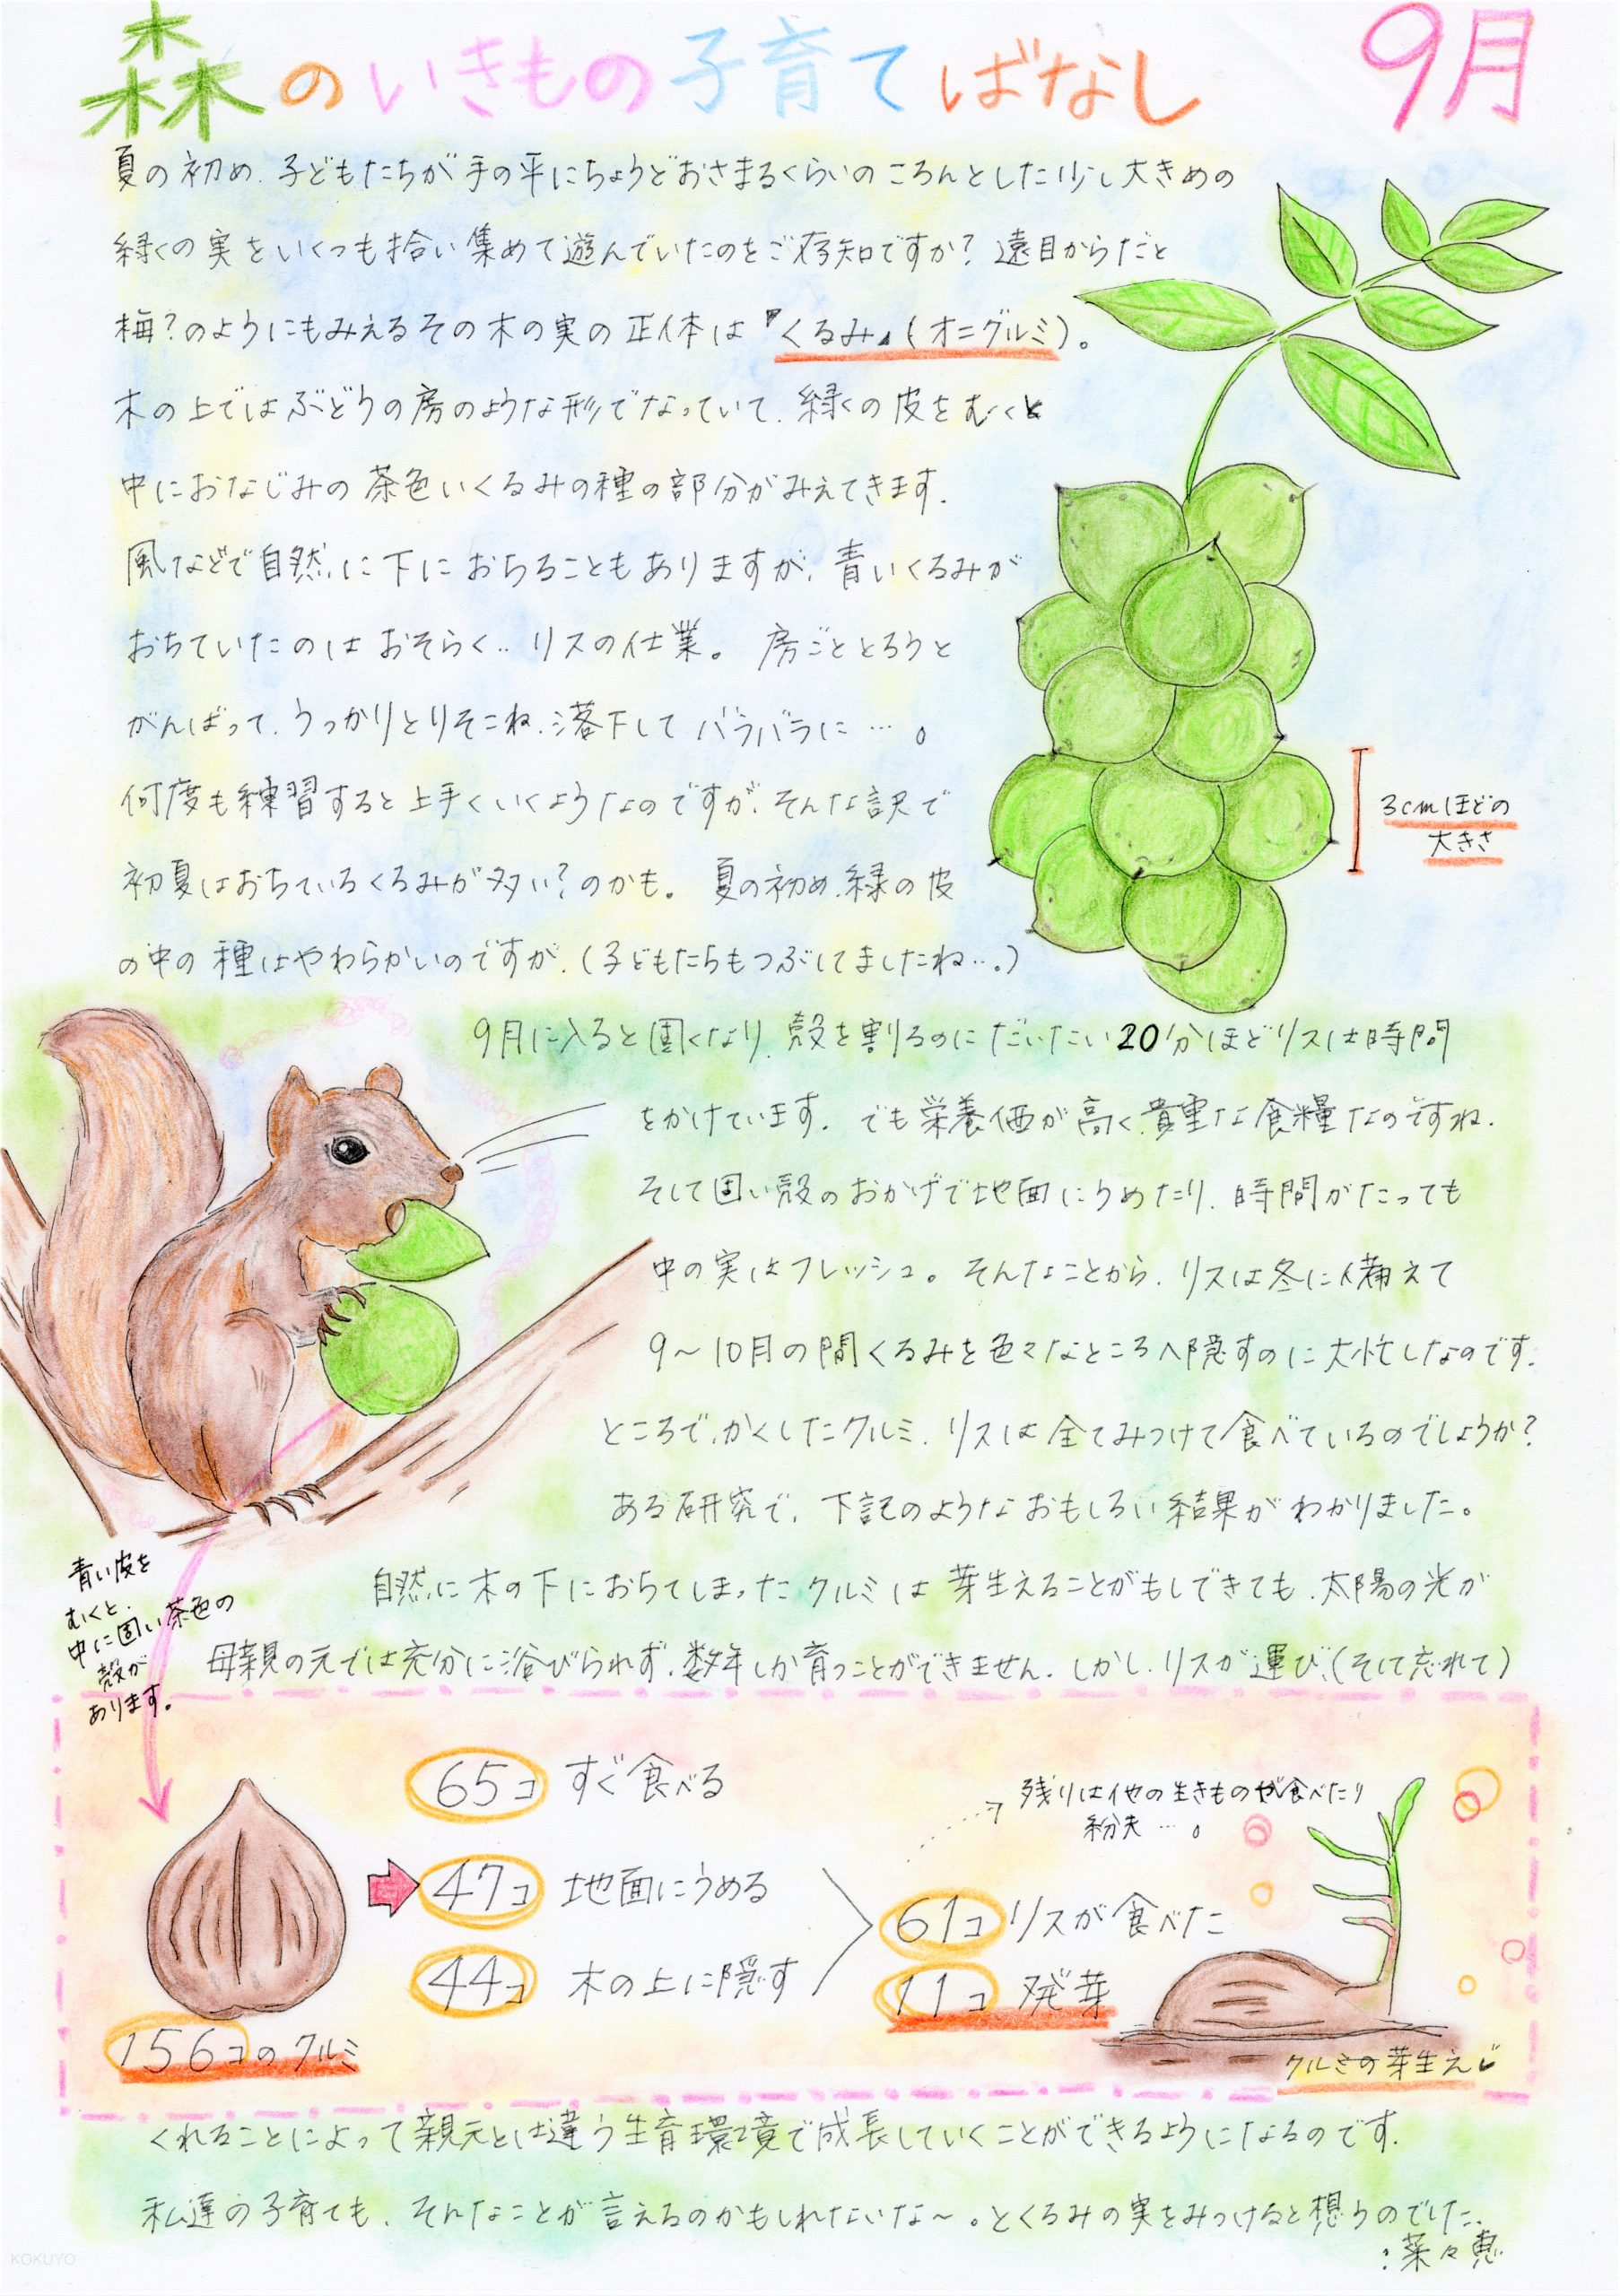 森のいきもの子育てばなし
9月
夏の初め、子どもたちが手の平にちょうどおさまるくらいのころんとした少し大きめの
緑くの実をいくつも拾い集めて遊んでいたのをご存知ですか？遠目からだと
梅？のようにもみえるその木の実の正体は『くるみ』（オニグルミ）。
木の上ではぶどうの房のような形でなっていて、緑くの皮をむくと
中におなじみの茶色いくるみの種の部分がみえてきます。
風などで自然に下におちることもありますが、青いくるみが
おちていたのはおそらく‥リスの仕業。房ごととろうと
がんばって、うっかりとりそこね、落下してバラバラに…。
何度も練習すると上手くいくようなのですが、そんな訳で
初夏はおちているくるみが多い？のかも。夏の初め、緑の皮
の中の種はやわらかいのですが、（子どもたちもつぶしてましたね…。）
3cmほどの
大きさ
9月に入ると固くなり、殻を割るのにだいたい20分ほどリスは時間
をかけています。でも栄養価が高く、貴重な食糧なのですね。
そして固い殻のおかげで地面にうめたり、時間がたっても
中の実はフレッシュ。そんなことから、リスは冬に備えて
9～10月の間くるみを色々なところへ隠すのに大忙しなのです。
ところで、かくしたクルミ、リスは全てみつけて食べているのでしょうか？
ある研究で、下記のようなおもしろい結果がわかりました。
自然に木の下におちてしまったクルミは芽生えることがもしできても、太陽の光が
母親の元では充分に浴びられず、数年しか育つことができません。しかし、リスが運び、（そして忘れて）
青い皮を
むくと、
中に固い茶色の
殻が
あります。
65コ すぐ食べる
47コ 地面にうめる
44コ 木の上に隠す
156コのクルミ
残りは他の生きものが食べたり
紛失…。
61コ リスが食べた
11コ 発芽
クルミの芽生え
くれることによって親元とは違う生育環境で成長していくことができるようになるのです。
私達の子育ても、そんなことが言えるのかもしれないな～。とくるみの実をみつけると想うのでした。
：菜々恵
KOKUYO